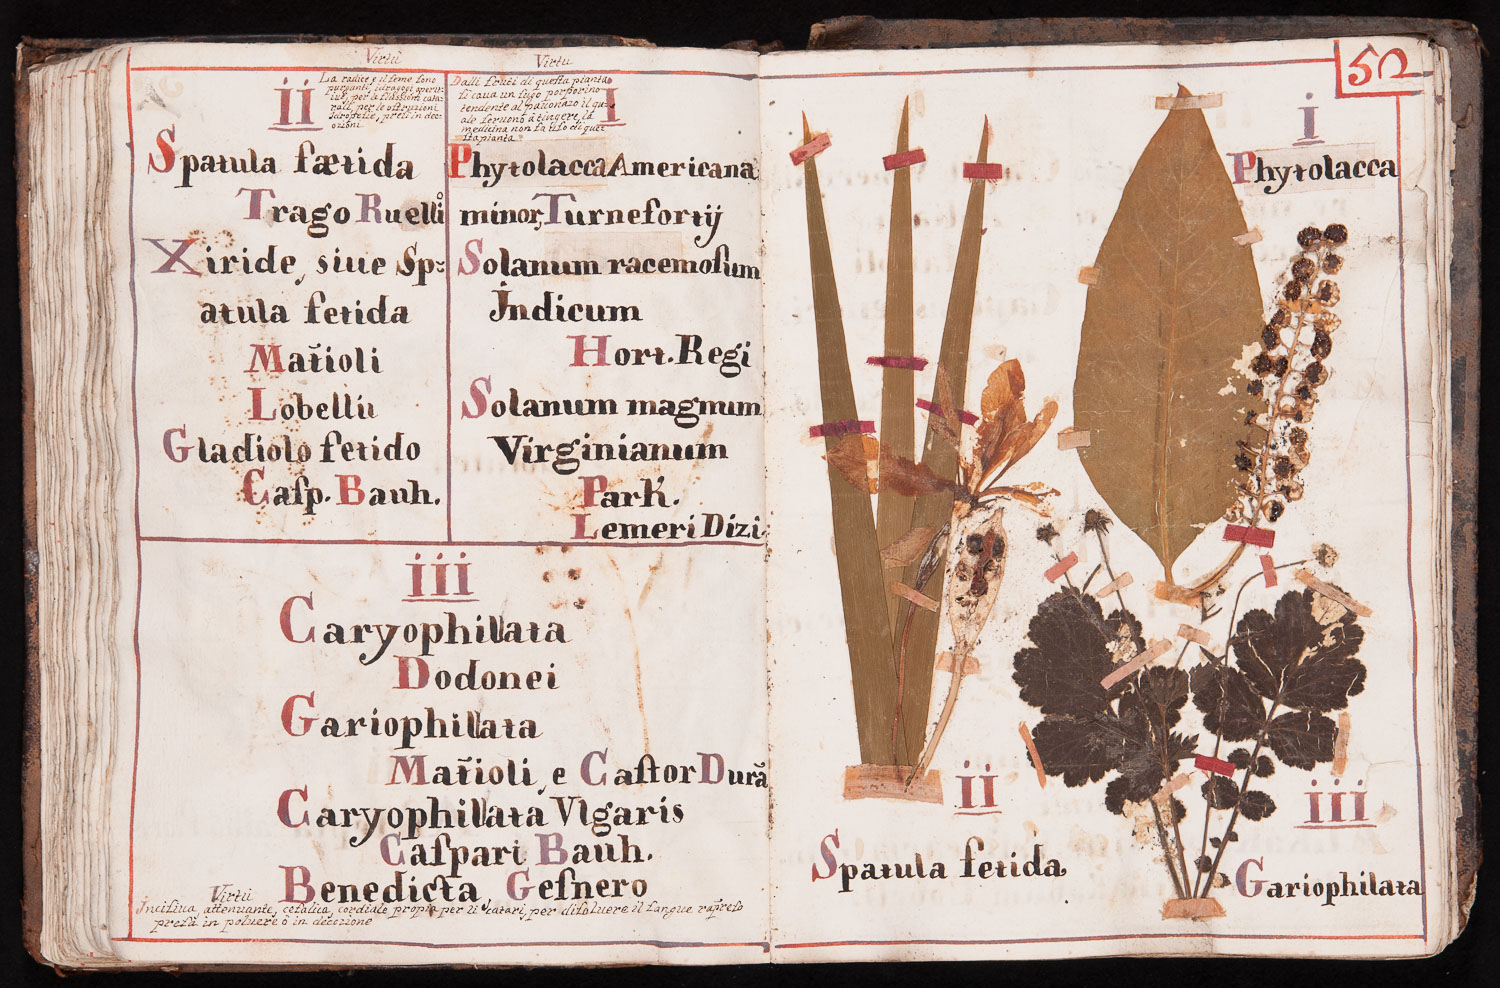 Virtù
ii
La radice e il seme sono
purganti, idragogi aperit-
ivi, per le flussioni cata-
rali, per le ostruzioni
Idropesie, presi in dec-
ozioni.
Spatula fætida
Trago Ruelli
Xiride, siue Sp=
atula fetida
Matioli
Lobellii
Gladiolo fetido
Casp. Bauh.
Virtu
i
Dalli frutti di questa pianta
si caua un sugo porporino
tendente al pauonazo il qu-
ale seruono a tingere, la
medicina non fa uso di ques
ta pianta.
Phytolacca Americana
minor, Turnefortij
Solanum racemosum
Indicum
Hort. Regi
Solanum magnum
Virginianum
Park.
Lemeri Dizi.
iii
Caryophillata
Dodonei
Gariophillata
Matioli, e Castor Durã
Caryophillata Vlgaris
Caspari Bauh.
Benedicta Gesnero
Virtù
Incisiua, attenuante, cefalica, cordiale propia per li catari, per disoluere il sangue rapreso
presa in poluere ò in decozione
50
i
Phytolacca
ii
Spatula fetida
iii
Gariophilata